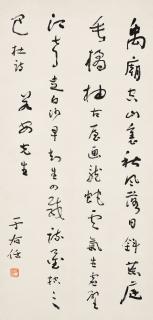 禹廟空山裏秋風落日斜荒庭
垂橘柚古屋畫龍蛇雲氣生虛壁
江聲走白沙早知乘四載疏鑿控三
巴 杜詩
先生
于右任